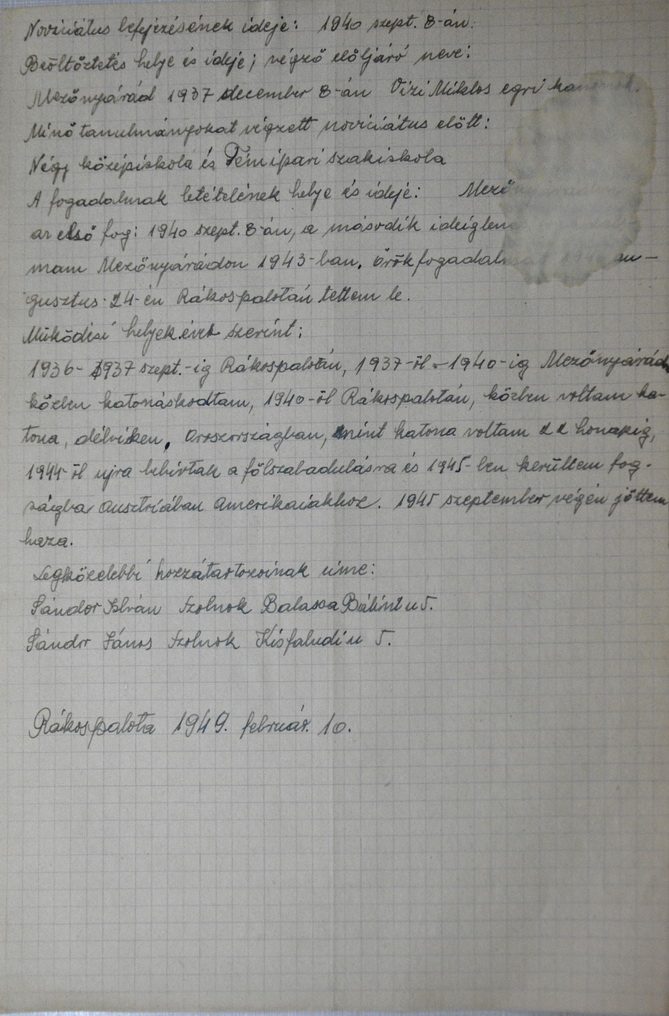 Noviciátus befejezésének ideje: 1940 szept. 8-án.
Beöltöztetés helye és ideje; végző elöljáró neve:
Mezőnyárád 1937 december 8-án Vizi Miklos egri kanonok.
Minő tanulmányokat végzett noviciátus előtt:
Négy középiskola és Fémipari szakiskola
A fogadalmak letételének helye és ideje:
az első fog: 1940 szept. 8-án, a második
mam Mezőnyárádon 1943-ban, örök au-
gusztus 24-én Rákospalotán tettem le.
Működési helyek évek szerint:
1936-1937 szept.-ig Rákospalotán, 1937-ől - 1940-ig Mezőnyárád
közben katonáskodtam, 1940-ől Rákospalotán, közben voltam ka-
tona, délviken, Oroszországban, mint katona voltam 22 honapig,
1944-ől ujra behivtak a fölszabadulásra és 1945-ben kerültem fog-
ságba Ausztriában Amerikaiakhoz. 1945 szeptember végén jöttem
haza.
Legközelebbi hozzátartozoinak cime:
Sándor István Szolnok Balassa Bálint u 5.
Sándor János Szolnok Kisfaludi u 5.
Rákospalota 1949. február 10.